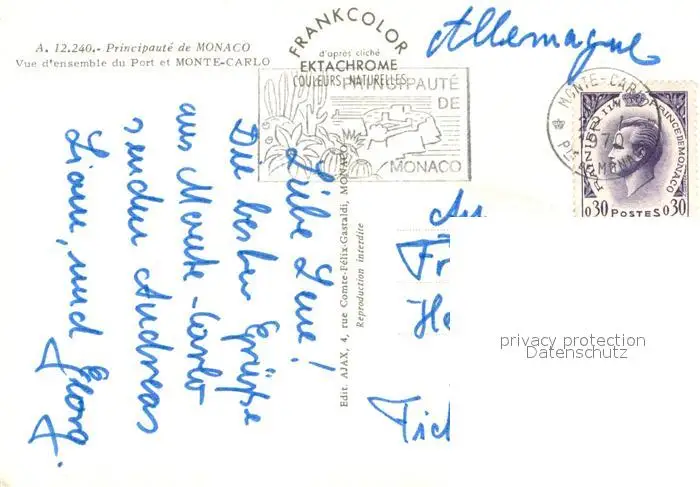 A. 12.240.- Principauté de MONACO
Vue d'ensemble du Port et MONTE-CARLO
FRANKCOLOR
d'après cliché
EKTACHROME
COULEURS NATURELLES
PRINCIPAUTÉ
DE
MONACO
Allemagne
MONTE-CARLO
RAINIER III PRINCE DE MONACO
0,30 POSTES 0,30
Edit. AJAX, 4, rue Comte-Félix-Gastaldi, MONACO
Reproduction interdite
Liebe Lene!
Die besten Grüße
aus Monte-Carlo
senden Andreas
Liane, und Georg.
An
Fr
He
Fich
privacy protection
Datenschutz